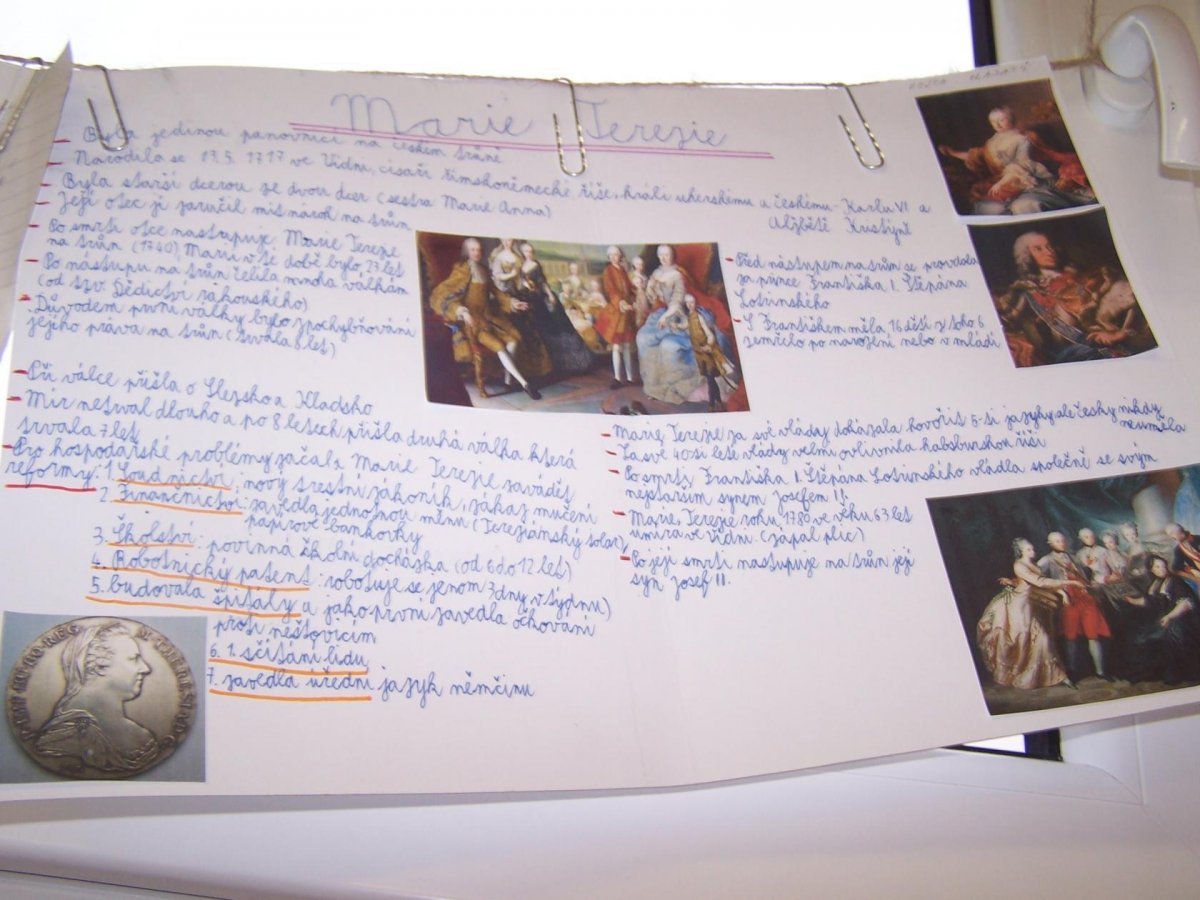 Marie Terezie
- Byla jedinou panovnicí na českém trůně
- Narodila se 13.5. 1717 ve Vídni, císaři římskoněmecké říše, králi uherskému a českému - Karlu VI a
Alžbětě Kristýně
- Byla starší dcerou ze dvou dcer (sestra Marie Anna)
- Její otec jí zaručil mít nárok na trůn
- Po smrti otce nastupuje Marie Terezie
na trůn (1740), Marii v té době bylo 23 let
- Po nástupu na trůn čelila mnoha válkám
(od tzv. Dědictví rakouského)
- Důvodem první války bylo zpochybňování
jejího práva na trůn (trvala 8 let)
- Před nástupem na trůn se provdala
za prince Františka I. Štěpána
Lotrinského
- S Františkem měla 16 dětí z toho 6
zemřelo po narození nebo v mládí
- Při válce přišla o Slezsko a Kladsko
- Mír netrval dlouho a po 8 letech přišla druhá válka která
trvala 7 let
- Pro hospodářské problémy začala Marie Terezie zavádět
reformy: 1. Soudnictví: nový trestní zákoník, zákaz mučení
2. Finančnictví: zavedla jednotnou měnu (Tereziánský tolar),
papírové bankovky
3. Školství: povinná školní docházka (od 6 do 12 let)
4. Robotnický patent: robotuje se jenom 3 dny v týdnu)
5. budovala špitály a jako první zavedla očkování
proti neštovicím
6. 1. sčítání lidu
7. zavedla úřední jazyk němčinu
- Marie Terezie za své vlády dokázala hovořit 5-ti jazyky ale česky nikdy
neuměla
- Za své 40-ti leté vlády velmi ovlivnila habsburskou říši
- Po smrti Františka I. Štěpána Lotrinského vládla společně se svým
nejstarším synem Josefem II.
- Marie Terezie roku 1780 ve věku 63 let
umírá ve Vídni (zápal plic)
- Po její smrti nastupuje na trůn její
syn Josef II.